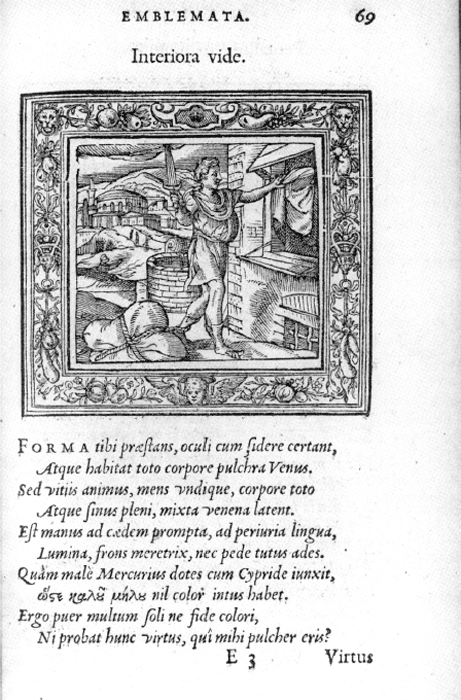 EMBLEMATA. 69
Interiora vide.
FORMA tibi præſtans, oculi cum ſidere certant,
Atque habitat toto corpore pulchra Venus.
Sed vitiis animus, mens vndique, corpore toto
Atque ſinus pleni, mixta venena latent.
Eſt manus ad cædem prompta, ad periuria lingua,
Lumina, frons meretrix, nec pede tutus ades.
Quàm malè Mercurius dotes cum Cypride iunxit,
ὥστε καλοῦ μήλου nil color intus habet.
Ergo puer multum ſoli ne fide colori,
Ni probat hunc virtus, quî mihi pulcher eris?
E 3 Virtus